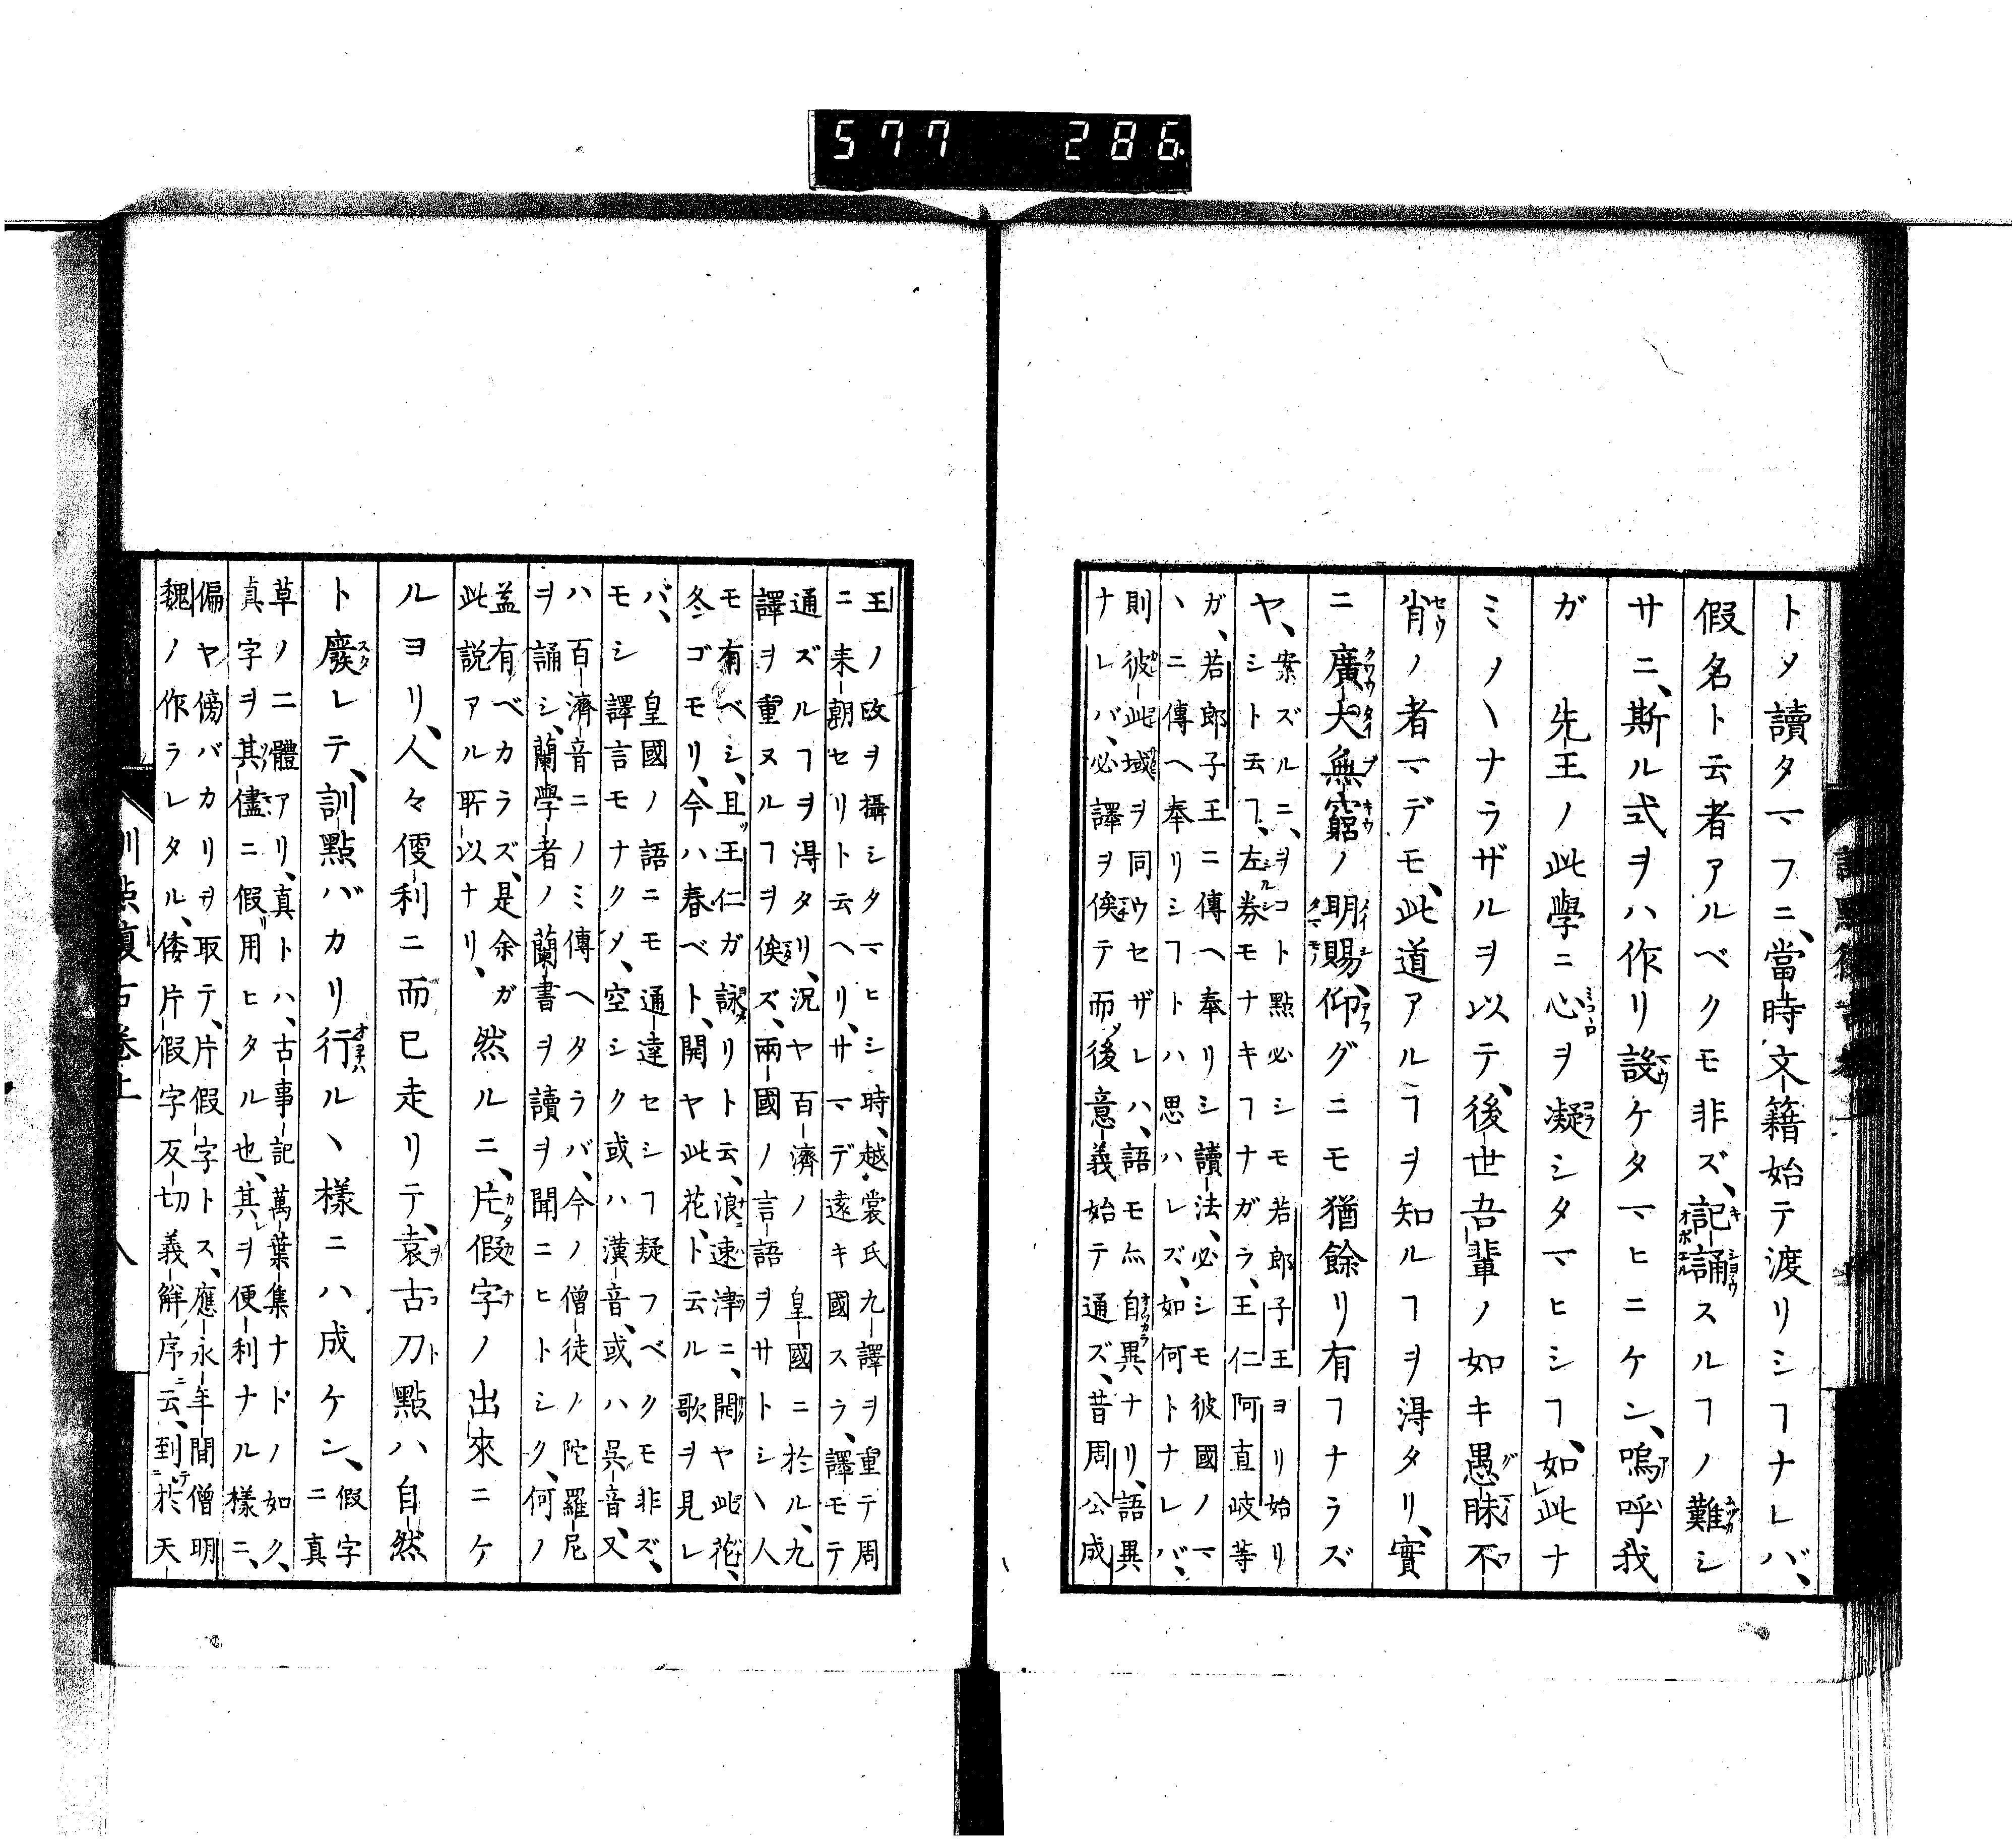 577 286
トメ讀タマフニ、當時文籍始テ渡リシヿナレバ、
假名ト云者アルベクモ非ズ、記誦スルヿノ難シ
サニ、斯ル式ヲハ作リ設ケタマヒニケン、嗚呼我
ガ 先王ノ此學ニ心ヲ凝シタマヒシヿ、如此ナ
ミノ〵ナラザルヲ以テ、後世吾輩ノ如キ愚眛不
肖ノ者マデモ、此道アルヿヲ知ルヿヲ得タリ、實
ニ廣大無窮ノ明賜、仰グニモ猶餘リ有ヿナラズ
ヤ、
案ズルニ、ヲコト點必シモ若郎子王ヨリ始リ
シト云ヿ、左券モナキヿナガラ、王仁阿直岐等
ガ、若郎子王ニ傳ヘ奉リシ讀法、必シモ彼國ノマ
ヽニ傳ヘ奉リシヿトハ思ハレズ、如何トナレバ、
則彼此域ヲ同ウセザレハ、語モ亦自異ナリ、語異
ナレバ、必譯ヲ俟テ而後意義始テ通ズ、昔周公成
王ノ政ヲ攝シタマヒシ時、越裳氏九譯ヲ重テ周
ニ来朝セリト云ヘリ、サマデ遠キ國スラ、譯モテ
通ズルヿヲ得タリ、況ヤ百濟ノ 皇國ニ於ル、九
譯ヲ重ヌルヿヲ俟ズ、兩國ノ言語ヲサトシヽ人
モ有ベシ、且王仁ガ詠リト云、浪速津ニ、開ヤ此花、
冬ゴモリ、今ハ春ベト、開ヤ此花、ト云ル歌ヲ見レ
バ、 皇國ノ語ニモ通達セシヿ疑フベクモ非ズ、
モシ譯言モナクメ、空シク或ハ漢音、或ハ呉音、又
ハ百濟音ニノミ傳ヘタラバ、今ノ僧徒ノ陀羅尼
ヲ誦シ、蘭學者ノ蘭書ヲ讀ヲ聞ニヒトシク、何ノ
益有ベカラズ、是余ガ
此説アル所以ナリ、
然ルニ、片假字ノ出來ニケ
ルヨリ、人々便利ニ而已走リテ、袁古刀點ハ自然
ト廢レテ、訓點バカリ行ルヽ樣ニハ成ケン、
假字
ニ真
草ノ二體アリ、真トハ、古事記萬葉集ナドノ如ク、
真字ヲ其儘ニ假用ヒタル也、其ヲ便利ナル樣ニ、
偏ヤ傍バカリヲ取テ、片假字トス、應永年間僧明
魏ノ作ラレタル、倭片假字反切義解序云、到於天
訓點復古卷上 八